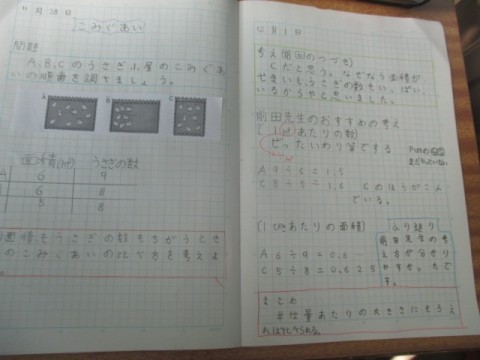 11月28日
こみぐあい
問題
A、B、Cのうさぎ小屋のこみぐあ
いの順番を調べましょう。
A B C
面積(㎡) うさぎの数
A 6 9
6 8
5 8
面積もうさぎの数もちがうとき
のこみぐあいの比べ方を考えよ
12月1日
考え(前回のつづき)
Cだと思う。なぜなら面積が
せまいし、うさぎの数もいっぱい
いるからやと思いました。
前田先生のおすすめの考え
(1㎡あたりの数)
ぜったいわり算でする
A 9÷6=1.5
C 8÷5=1.6 Cのほうがこん
でいる。
(1ぴきあたりの面積)
A 6÷9=0.6
C 5÷8=0.625
ふり返り
前田先生の考
え方が分かり
やすかったで
す。
まとめ
単位量あたりの大きさにそろえ
ればくらべられる。